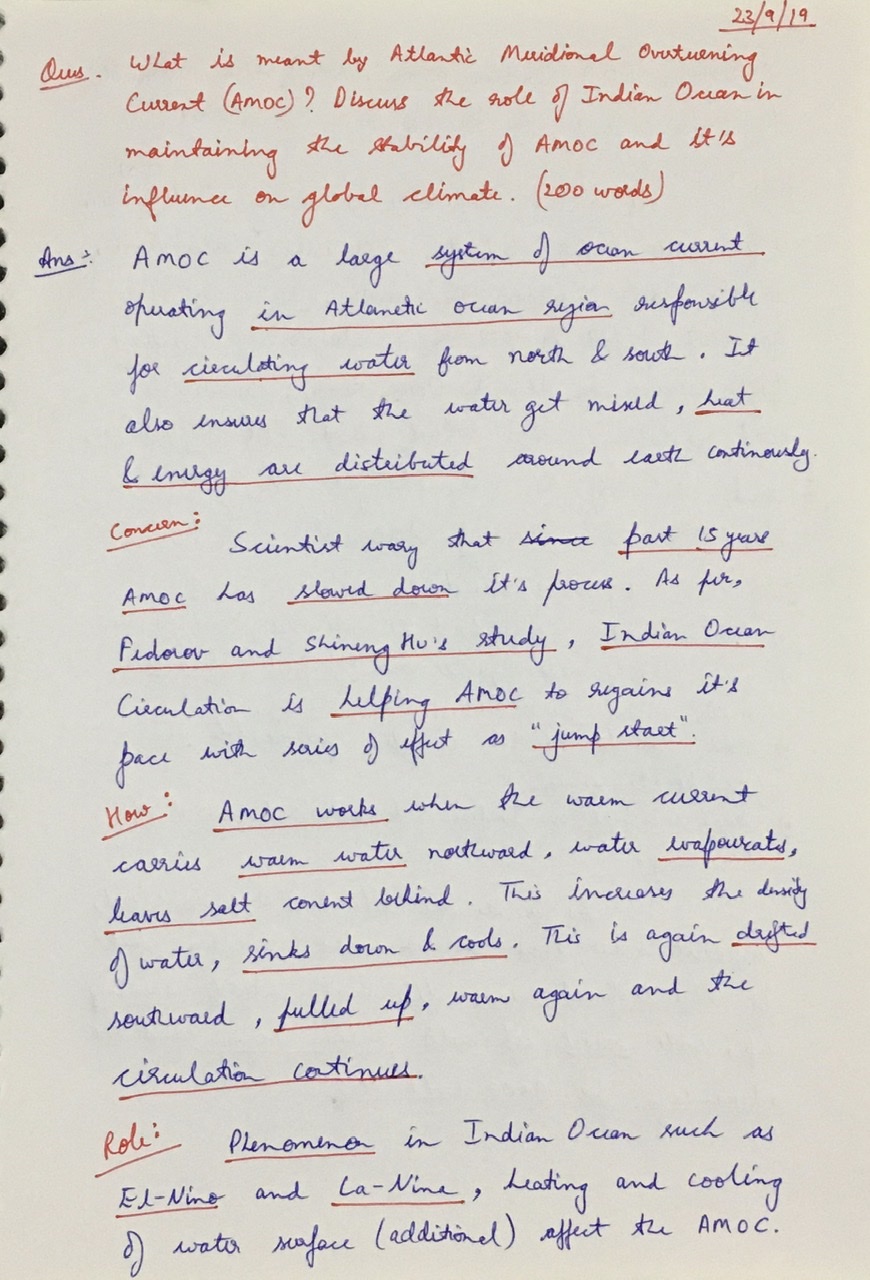 23/9/19
Ques. What is meant by Atlantic Meridional Overturning
Current (AMOC)? Discuss the role of Indian Ocean in
maintaining the stability of AMOC and it's
influence on global climate. (200 words)
Ans:- AMOC is a large system of ocean current
operating in Atlantic ocean region responsible
for circulating water from north & south. It
also ensures that the water get mixed, heat
& energy are distributed around earth continously.
Concern: Scientist wary that since past 15 years
AMOC has slowed down it's process. As per,
Fedorov and Shineng Hu's study, Indian Ocean
Circulation is helping AMOC to regains it's
pace with series of effect as "jump start".
How: AMOC works when the warm current
carries warm water northward, water evapourates,
leaves salt conent behind. This increases the density
of water, sinks down & cools. This is again drifted
southward, pulled up, warm again and the
circulation continues.
Role: Phenomenon in Indian Ocean such as
El-Nino and La-Nina, heating and cooling
of water surface (additional) affect the AMOC.